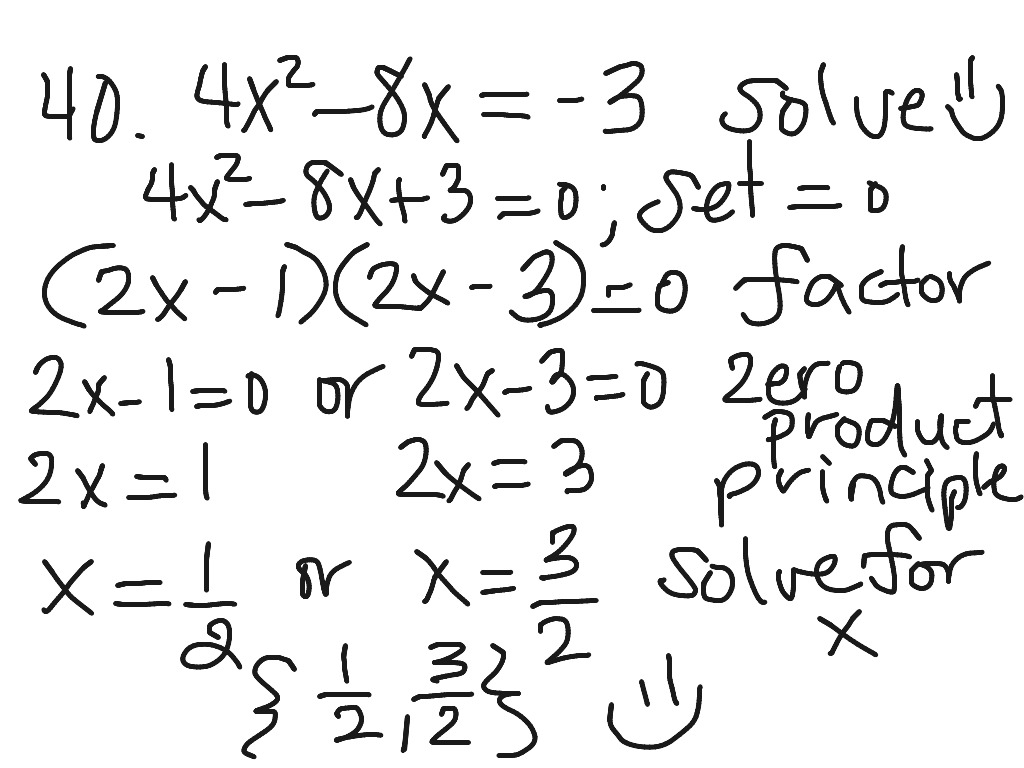 40. 4x² - 8x = -3 solve
4x² - 8x + 3 = 0 ; set = 0
(2x - 1)(2x - 3) = 0 factor
2x - 1 = 0 or 2x - 3 = 0 zero
product
2x = 1 2x = 3 principle
x = 1/2 or x = 3/2 solve for
x
{1/2, 3/2}